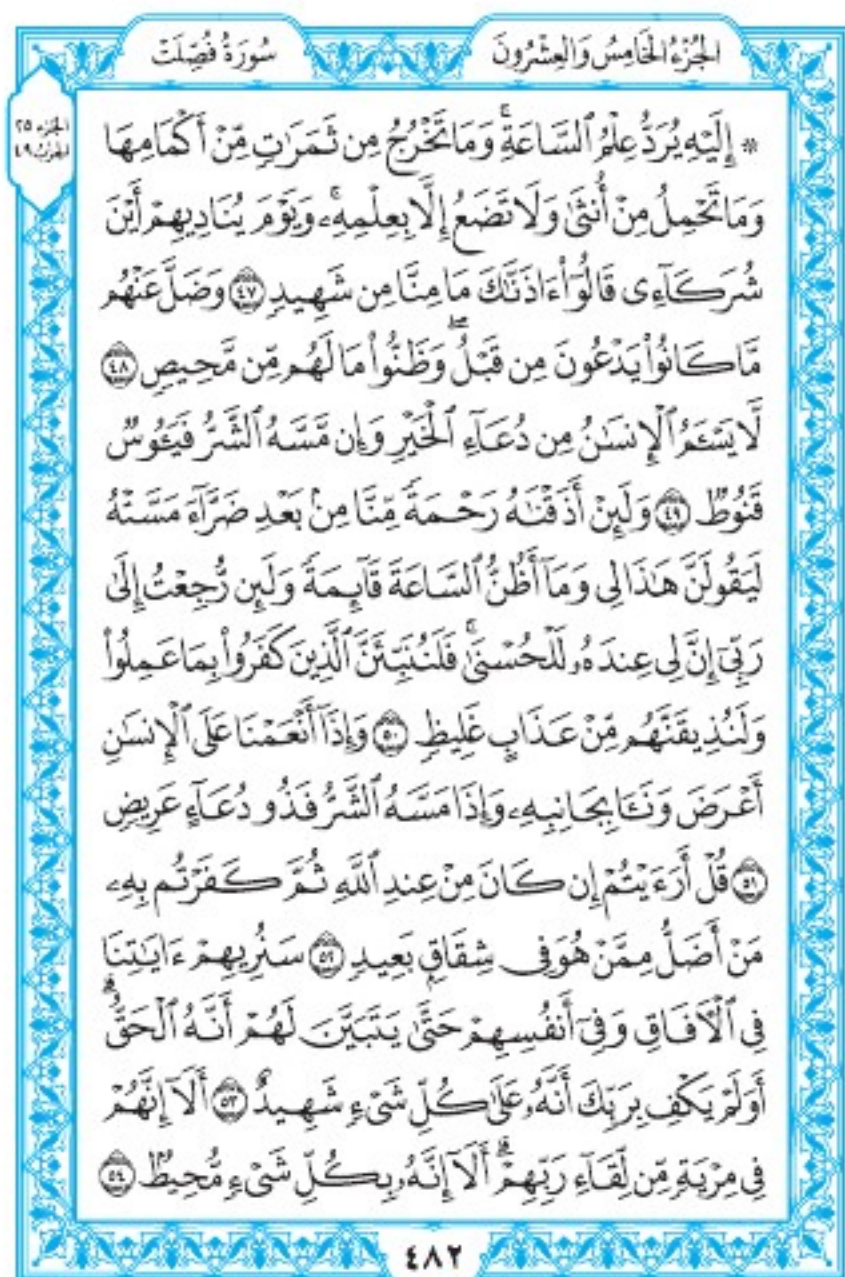 الجُزْءُ الخَامِسُ وَالعِشْرُونَ
سُورَةُ فُصِّلَتْ
الجزء ٢٥
الحزب ٤٩
۞ إِلَيْهِ يُرَدُّ عِلْمُ ٱلسَّاعَةِۚ وَمَا تَخْرُجُ مِن ثَمَرَٰتٍ مِّنْ أَكْمَامِهَا
وَمَا تَحْمِلُ مِنْ أُنثَىٰ وَلَا تَضَعُ إِلَّا بِعِلْمِهِۦۚ وَيَوْمَ يُنَادِيهِمْ أَيْنَ
شُرَكَآءِى قَالُوٓا۟ ءَاذَنَّٰكَ مَا مِنَّا مِن شَهِيدٍ ٤٧ وَضَلَّ عَنْهُم
مَّا كَانُوا۟ يَدْعُونَ مِن قَبْلُۖ وَظَنُّوا۟ مَا لَهُم مِّن مَّحِيصٍ ٤٨
لَّا يَسْـَٔمُ ٱلْإِنسَٰنُ مِن دُعَآءِ ٱلْخَيْرِ وَإِن مَّسَّهُ ٱلشَّرُّ فَيَـُٔوسٌ
قَنُوطٌ ٤٩ وَلَئِنْ أَذَقْنَٰهُ رَحْمَةً مِّنَّا مِنۢ بَعْدِ ضَرَّآءَ مَسَّتْهُ
لَيَقُولَنَّ هَٰذَا لِى وَمَآ أَظُنُّ ٱلسَّاعَةَ قَآئِمَةً وَلَئِن رُّجِعْتُ إِلَىٰ
رَبِّىٓ إِنَّ لِى عِندَهُۥ لَلْحُسْنَىٰۚ فَلَنُنَبِّئَنَّ ٱلَّذِينَ كَفَرُوا۟ بِمَا عَمِلُوا۟
وَلَنُذِيقَنَّهُم مِّنْ عَذَابٍ غَلِيظٍ ٥٠ وَإِذَآ أَنْعَمْنَا عَلَى ٱلْإِنسَٰنِ
أَعْرَضَ وَنَـَٔا بِجَانِبِهِۦ وَإِذَا مَسَّهُ ٱلشَّرُّ فَذُو دُعَآءٍ عَرِيضٍ
٥١ قُلْ أَرَءَيْتُمْ إِن كَانَ مِنْ عِندِ ٱللَّهِ ثُمَّ كَفَرْتُم بِهِۦ
مَنْ أَضَلُّ مِمَّنْ هُوَ فِى شِقَاقٍۭ بَعِيدٍ ٥٢ سَنُرِيهِمْ ءَايَٰتِنَا
فِى ٱلْءَافَاقِ وَفِىٓ أَنفُسِهِمْ حَتَّىٰ يَتَبَيَّنَ لَهُمْ أَنَّهُ ٱلْحَقُّۗ
أَوَلَمْ يَكْفِ بِرَبِّكَ أَنَّهُۥ عَلَىٰ كُلِّ شَىْءٍ شَهِيدٌ ٥٣ أَلَآ إِنَّهُمْ
فِى مِرْيَةٍ مِّن لِّقَآءِ رَبِّهِمْۗ أَلَآ إِنَّهُۥ بِكُلِّ شَىْءٍ مُّحِيطٌۢ ٥٤
٤٨٢